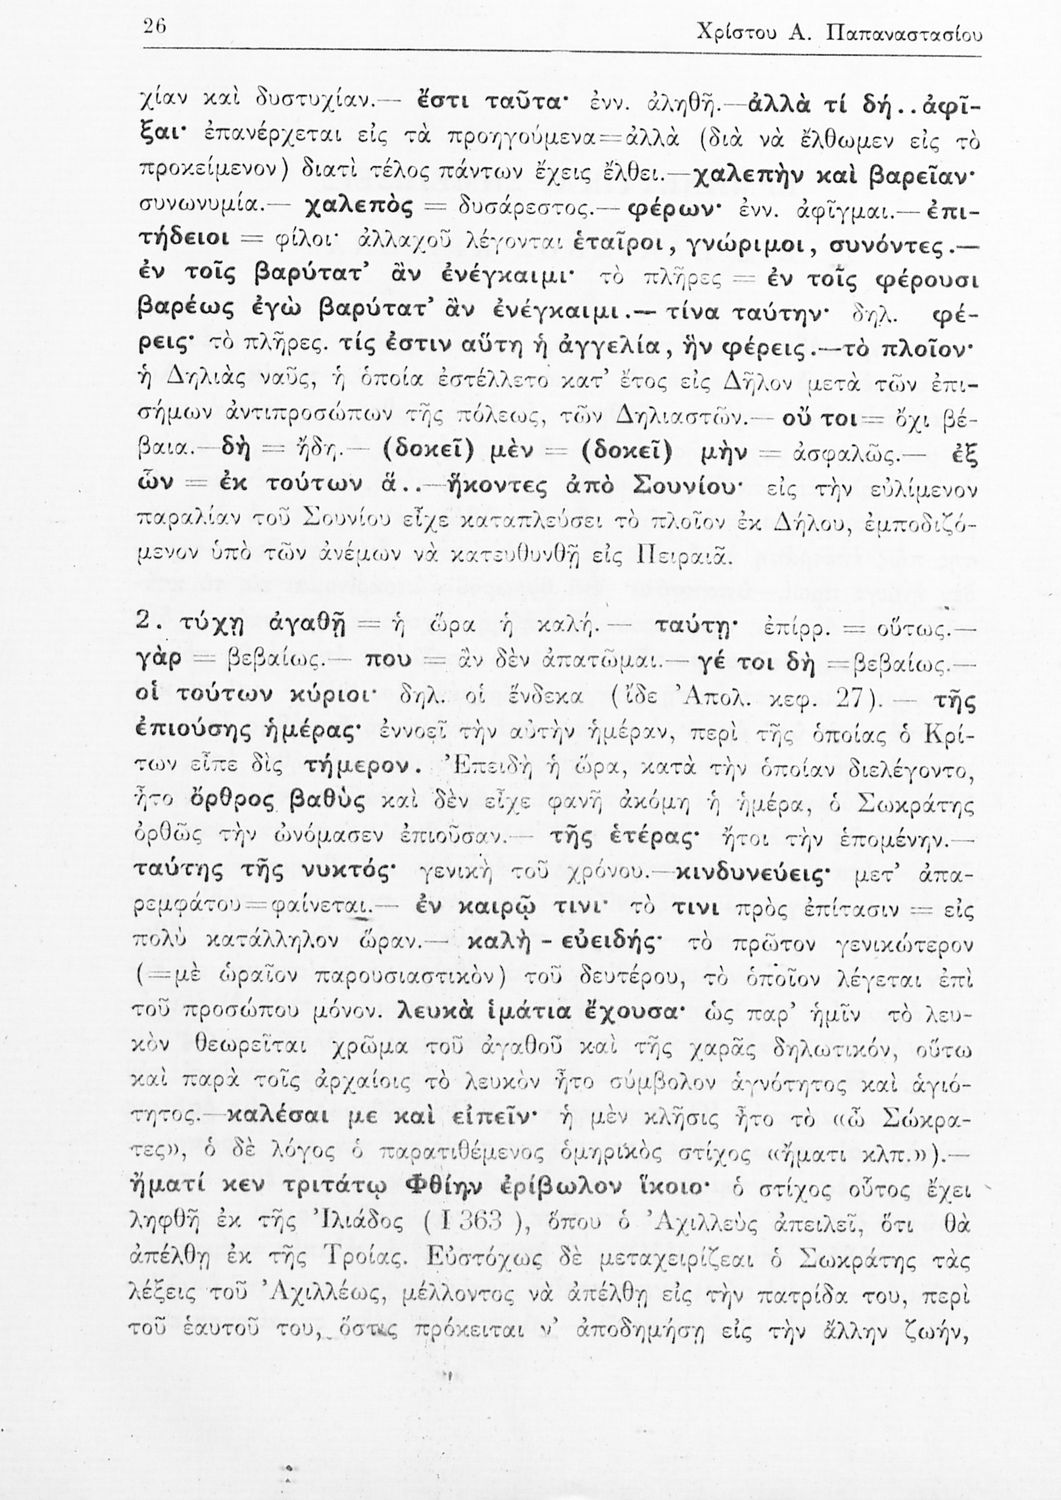 26
Χρίστου Α. Παπαναστασίου
χίαν καὶ δυστυχίαν.— ἔστι ταῦτα· ἐνν. ἀληθῆ.—ἀλλὰ τί δή..ἀφῖ-
ξαι· ἐπανέρχεται εἰς τὰ προηγούμενα=ἀλλὰ (διὰ νὰ ἔλθωμεν εἰς τὸ
προκείμενον) διατὶ τέλος πάντων ἔχεις ἔλθει.—χαλεπὴν καὶ βαρεῖαν·
συνωνυμία.— χαλεπὸς = δυσάρεστος.— φέρων· ἐνν. ἀφῖγμαι.— ἐπι-
τήδειοι = φίλοι· ἀλλαχοῦ λέγονται ἑταῖροι, γνώριμοι, συνόντες.—
ἐν τοῖς βαρύτατ’ ἂν ἐνέγκαιμι· τὸ πλῆρες = ἐν τοῖς φέρουσι
βαρέως ἐγὼ βαρύτατ’ ἂν ἐνέγκαιμι.— τίνα ταύτην· δηλ. φέ-
ρεις· τὸ πλῆρες. τίς ἐστιν αὕτη ἡ ἀγγελία, ἣν φέρεις.—τὸ πλοῖον·
ἡ Δηλιὰς ναῦς, ἡ ὁποία ἐστέλλετο κατ’ ἔτος εἰς Δῆλον μετὰ τῶν ἐπι-
σήμων ἀντιπροσώπων τῆς πόλεως, τῶν Δηλιαστῶν.— οὔ τοι= ὄχι βέ-
βαια.—δὴ = ἤδη.— (δοκεῖ) μὲν = (δοκεῖ) μὴν = ἀσφαλῶς.— ἐξ
ὧν = ἐκ τούτων ἅ..—ἥκοντες ἀπὸ Σουνίου· εἰς τὴν εὐλίμενον
παραλίαν τοῦ Σουνίου εἶχε καταπλεύσει τὸ πλοῖον ἐκ Δήλου, ἐμποδιζό-
μενον ὑπὸ τῶν ἀνέμων νὰ κατευθυνθῇ εἰς Πειραιᾶ.
2. τύχῃ ἀγαθῇ = ἡ ὥρα ἡ καλή.— ταύτῃ· ἐπίρρ. = οὕτως.—
γὰρ = βεβαίως.— που = ἂν δὲν ἀπατῶμαι.— γέ τοι δὴ =βεβαίως.—
οἱ τούτων κύριοι· δηλ. οἱ ἕνδεκα (ἴδε Ἀπολ. κεφ. 27). — τῆς
ἐπιούσης ἡμέρας· ἐννοεῖ τὴν αὐτὴν ἡμέραν, περὶ τῆς ὁποίας ὁ Κρί-
των εἶπε δὶς τήμερον. Ἐπειδὴ ἡ ὥρα, κατὰ τὴν ὁποίαν διελέγοντο,
ἦτο ὄρθρος βαθὺς καὶ δὲν εἶχε φανῆ ἀκόμη ἡ ἡμέρα, ὁ Σωκράτης
ὀρθῶς τὴν ὠνόμασεν ἐπιοῦσαν.— τῆς ἑτέρας· ἤτοι τὴν ἑπομένην.—
ταύτης τῆς νυκτός· γενικὴ τοῦ χρόνου.—κινδυνεύεις· μετ’ ἀπα-
ρεμφάτου=φαίνεται.— ἐν καιρῷ τινι· τὸ τινι πρὸς ἐπίτασιν = εἰς
πολὺ κατάλληλον ὥραν.— καλὴ - εὐειδής· τὸ πρῶτον γενικώτερον
(=μὲ ὡραῖον παρουσιαστικὸν) τοῦ δευτέρου, τὸ ὁποῖον λέγεται ἐπὶ
τοῦ προσώπου μόνον. λευκὰ ἱμάτια ἔχουσα· ὡς παρ’ ἡμῖν τὸ λευ-
κὸν θεωρεῖται χρῶμα τοῦ ἀγαθοῦ καὶ τῆς χαρᾶς δηλωτικόν, οὕτω
καὶ παρὰ τοῖς ἀρχαίοις τὸ λευκὸν ἦτο σύμβολον ἁγνότητος καὶ ἁγιό-
τητος.—καλέσαι με καὶ εἰπεῖν· ἡ μὲν κλῆσις ἦτο τὸ «ὦ Σώκρα-
τες», ὁ δὲ λόγος ὁ παρατιθέμενος ὁμηρικὸς στίχος «ἤματι κλπ.»).—
ἤματί κεν τριτάτῳ Φθίην ἐρίβωλον ἵκοιο· ὁ στίχος οὗτος ἔχει
ληφθῆ ἐκ τῆς Ἰλιάδος ( Ι 363 ), ὅπου ὁ Ἀχιλλεὺς ἀπειλεῖ, ὅτι θὰ
ἀπέλθῃ ἐκ τῆς Τροίας. Εὐστόχως δὲ μεταχειρίζεαι ὁ Σωκράτης τὰς
λέξεις τοῦ Ἀχιλλέως, μέλλοντος νὰ ἀπέλθῃ εἰς τὴν πατρίδα του, περὶ
τοῦ ἑαυτοῦ του, ὅστις πρόκειται ν’ ἀποδημήσῃ εἰς τὴν ἄλλην ζωήν,